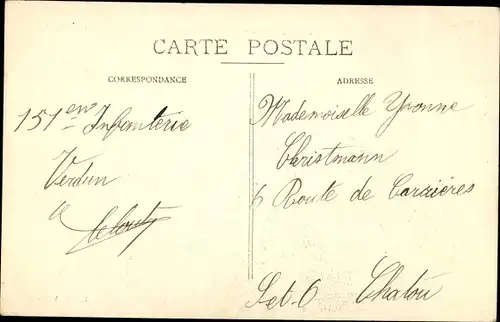 CARTE POSTALE
CORRESPONDANCE
151ème Infanterie
Verdun
ADRESSE
Mademoiselle Yvonne
Christmann
6 Route de Carrières
Set-O Chatou